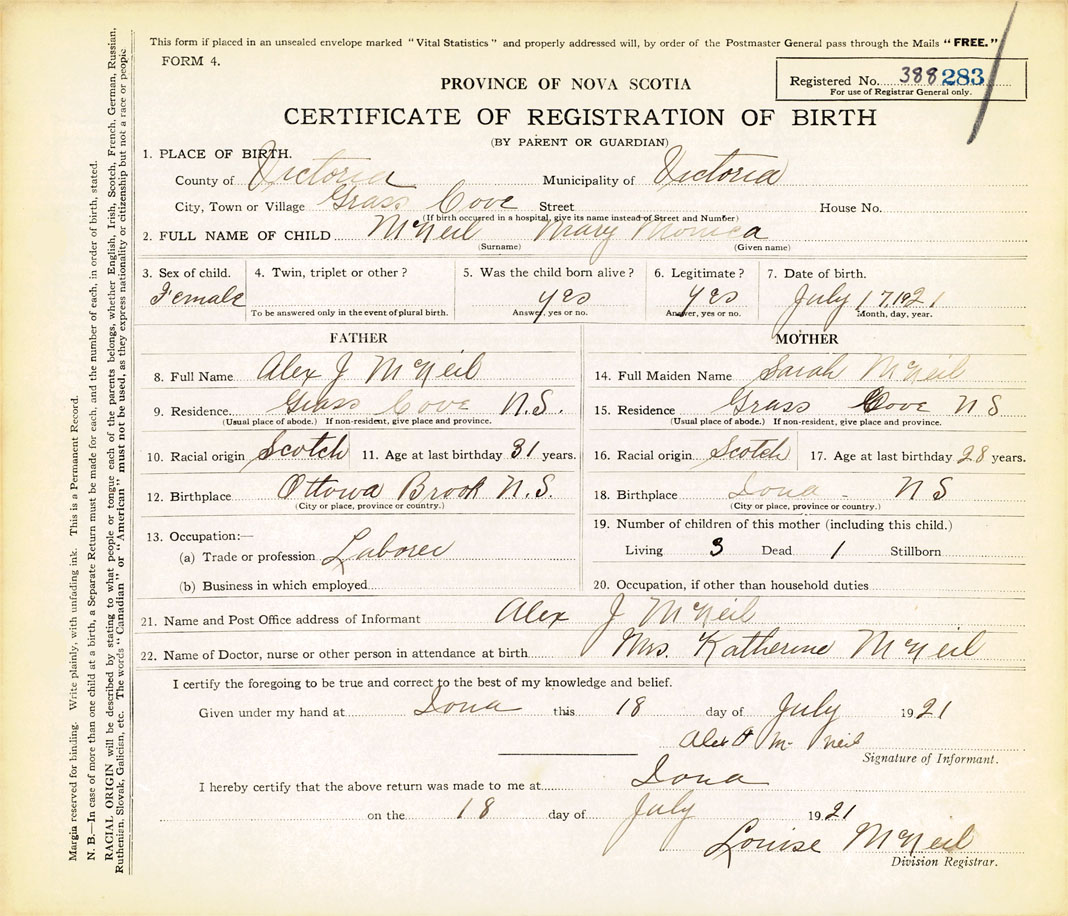 This form if placed in an unsealed envelope marked "Vital Statistics" and properly addressed will, by order of the Postmaster General pass through the Mails "FREE."
FORM 4.
Registered No. 388 283
For use of Registrar General only.
PROVINCE OF NOVA SCOTIA
CERTIFICATE OF REGISTRATION OF BIRTH
(BY PARENT OR GUARDIAN)
1. PLACE OF BIRTH.
County of Victoria Municipality of Victoria
City, Town or Village Grass Cove Street House No.
(If birth occurred in a hospital, give its name instead of Street and Number)
2. FULL NAME OF CHILD McNeil Mary Monica
(Surname) (Given name)
3. Sex of child. 4. Twin, triplet or other? 5. Was the child born alive? 6. Legitimate? 7. Date of birth.
Female yes yes July 17, 1921
To be answered only in the event of plural birth. Answer, yes or no. Answer, yes or no. Month, day, year.
FATHER
8. Full Name Alex J McNeil
9. Residence Grass Cove N.S.
(Usual place of abode.) If non-resident, give place and province.
10. Racial origin Scotch 11. Age at last birthday 31 years.
12. Birthplace Ottowa Brook N.S.
(City or place, province or country.)
13. Occupation:—
(a) Trade or profession Laborer
(b) Business in which employed
MOTHER
14. Full Maiden Name Sarah McNeil
15. Residence Grass Cove N S
(Usual place of abode.) If non-resident, give place and province.
16. Racial origin Scotch 17. Age at last birthday 28 years.
18. Birthplace Iona - N S
(City or place, province or country.)
19. Number of children of this mother (including this child.)
Living 3 Dead 1 Stillborn
20. Occupation, if other than household duties
21. Name and Post Office address of Informant Alex J McNeil
22. Name of Doctor, nurse or other person in attendance at birth Mrs. Katherine McNeil
I certify the foregoing to be true and correct to the best of my knowledge and belief.
Given under my hand at Iona this 18 day of July 1921
Alex J McNeil
Signature of Informant.
I hereby certify that the above return was made to me at Iona
on the 18 day of July 1921
Louise McNeil
Division Registrar.
Margin reserved for binding. Write plainly, with unfading ink. This is a Permanent Record.
N. B.—In case of more than one child at a birth, a Separate Return must be made for each, and the number of each, in order of birth, stated.
RACIAL ORIGIN will be described by stating to what people or tongue each of the parents belongs, whether English, Irish, Scotch, French, German, Russian,
Ruthenian, Slovak, Galician, etc. The words "Canadian" or "American" must not be used, as they express nationality or citizenship but not a race or people